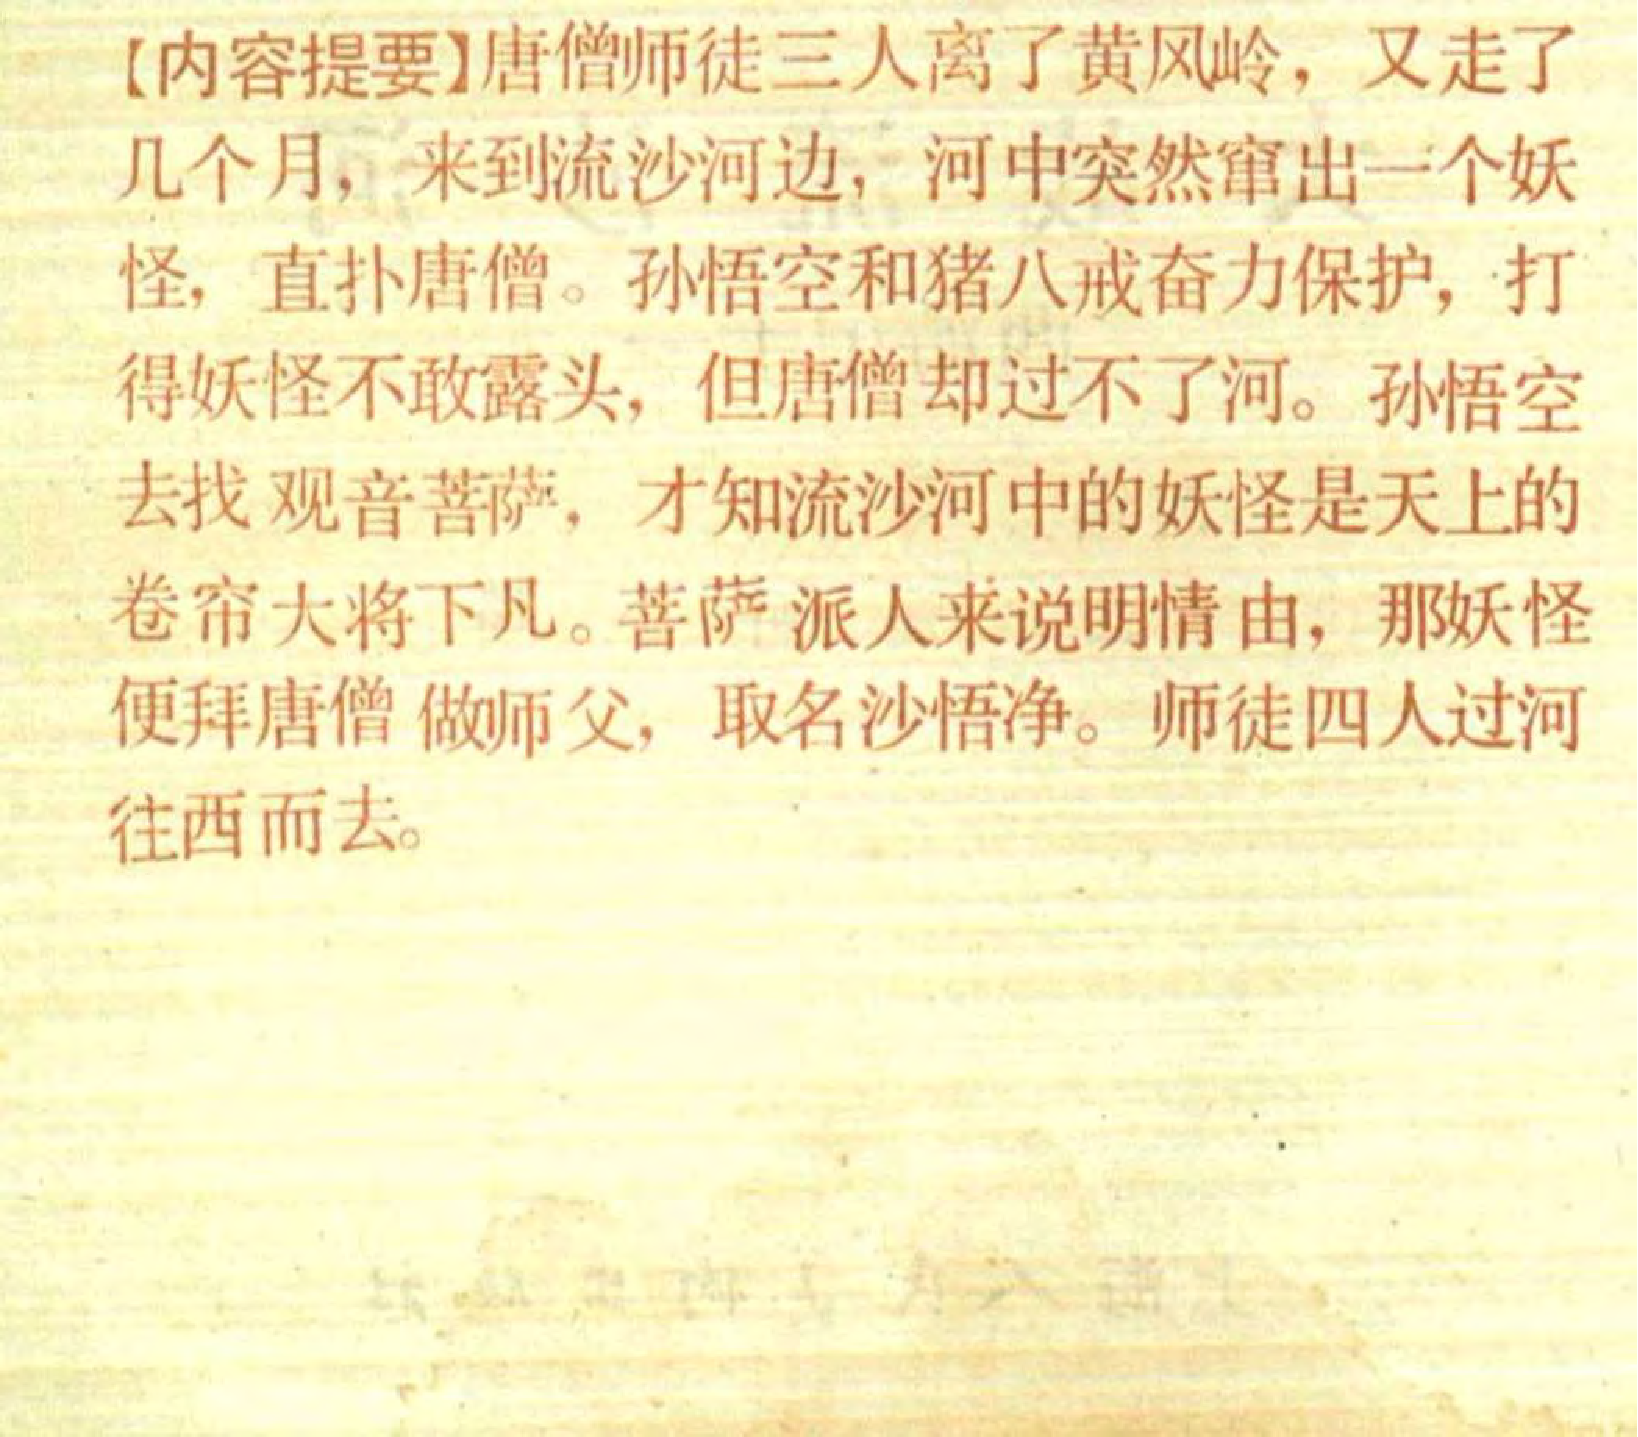 【内容提要】唐僧师徒三人离了黄风岭，又走了
几个月，来到流沙河边，河中突然窜出一个妖
怪，直扑唐僧。孙悟空和猪八戒奋力保护，打
得妖怪不敢露头，但唐僧却过不了河。孙悟空
去找观音菩萨，才知流沙河中的妖怪是天上的
卷帘大将下凡。菩萨派人来说明情由，那妖怪
便拜唐僧做师父，取名沙悟净。师徒四人过河
往西而去。